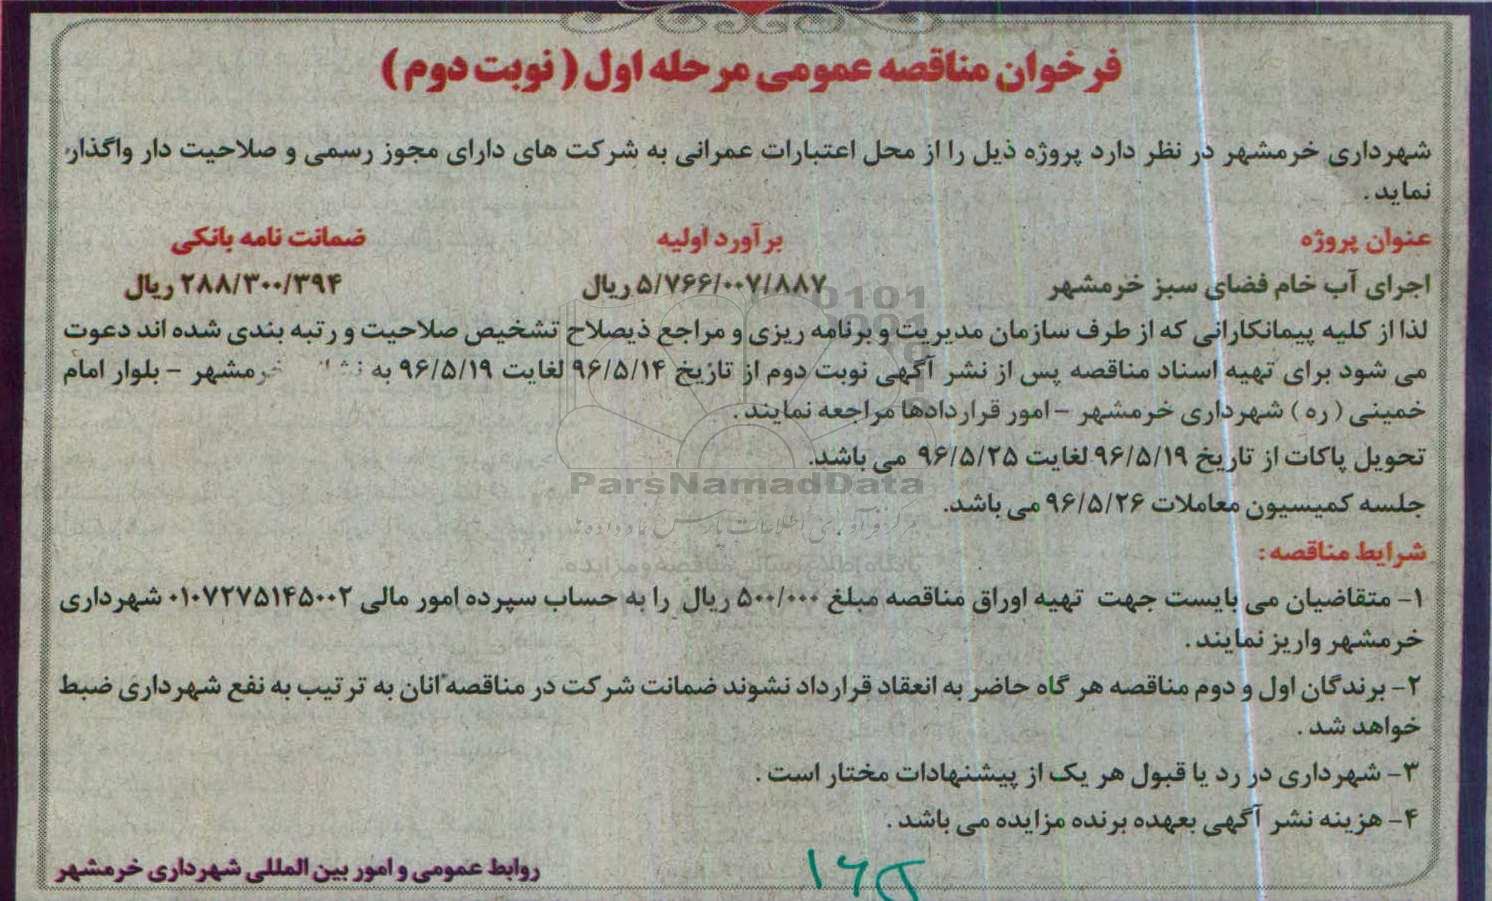 فرخوان مناقصه عمومی مرحله اول ( نوبت دوم )
شهرداری خرمشهر در نظر دارد پروژه ذیل را از محل اعتبارات عمرانی به شرکت های دارای مجوز رسمی و صلاحیت دار واگذار
نماید .
عنوان پروژه برآورد اولیه ضمانت نامه بانکی
اجرای آب خام فضای سبز خرمشهر ۵/۷۶۶/۰۰۷/۸۸۷ ریال ۲۸۸/۳۰۰/۳۹۴ ریال
لذا از کلیه پیمانکارانی که از طرف سازمان مدیریت و برنامه ریزی و مراجع ذیصلاح تشخیص صلاحیت و رتبه بندی شده اند دعوت
می شود برای تهیه اسناد مناقصه پس از نشر آگهی نوبت دوم از تاریخ ۹۶/۵/۱۴ لغایت ۹۶/۵/۱۹ به خرمشهر - بلوار امام
خمینی ( ره ) شهرداری خرمشهر - امور قراردادها مراجعه نمایند .
تحویل پاکات از تاریخ ۹۶/۵/۱۹ لغایت ۹۶/۵/۲۵ می باشد.
ParsNamadData
جلسه کمیسیون معاملات ۹۶/۵/۲۶ می باشد.
شرایط مناقصه :
۱- متقاضیان می بایست جهت تهیه اوراق مناقصه مبلغ ۵۰۰/۰۰۰ ریال را به حساب سپرده امور مالی ۰۱۰۷۲۷۵۱۴۵۰۰۲ شهرداری
خرمشهر واریز نمایند .
۲- برندگان اول و دوم مناقصه هر گاه حاضر به انعقاد قرارداد نشوند ضمانت شرکت در مناقصه آنان به ترتیب به نفع شهرداری ضبط
خواهد شد .
۳- شهرداری در رد یا قبول هر یک از پیشنهادات مختار است .
۴- هزینه نشر آگهی بعهده برنده مزایده می باشد .
روابط عمومی و امور بین المللی شهرداری خرمشهر